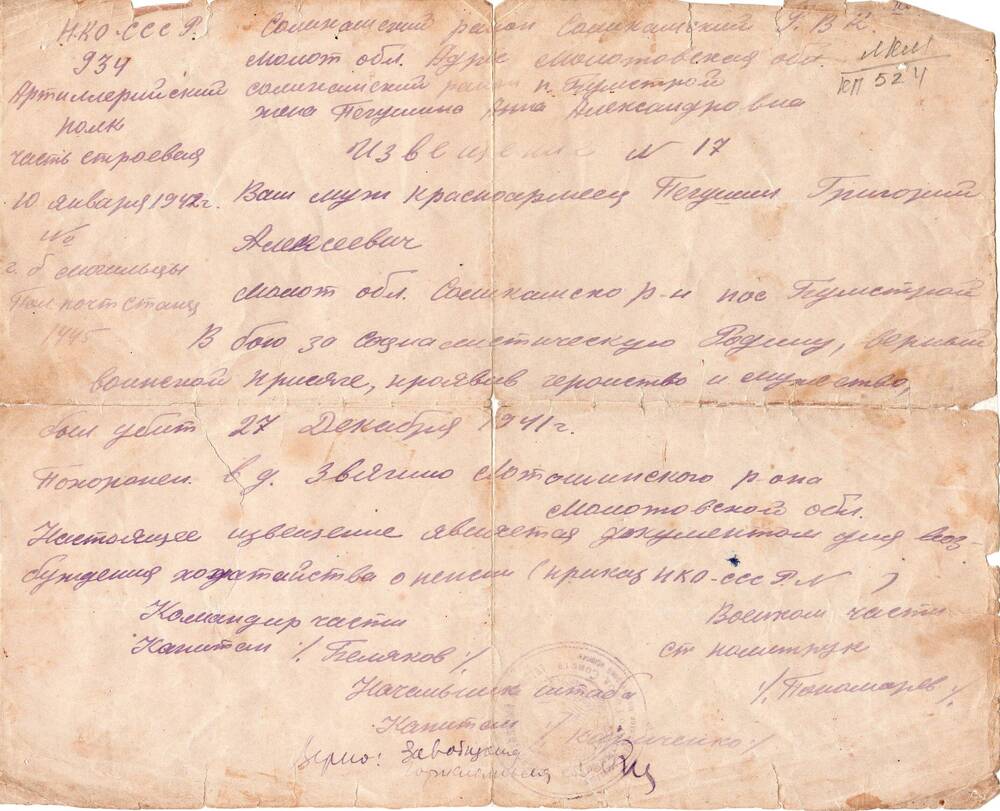 НКО-СССР
934
Артиллерийский
полк
часть строевая
10 января 1942г.
№
г. б
Пол почт станц
1445
Соликамский район Соликамский Г.В.К.
Молот обл. Адрес Молотовская обл.
соликамский район п. Бумстрой
жена Пегушина Анна Александровна
ЛКМ
КП 524
Извещение N 17
Ваш муж красноармеец Пегушин Григорий
Алексеевич
Молот обл. Соликамско р-н пос Бумстрой
В бою за социалистическую Родину, верный
воинской присяге, проявив геройство и мужество,
был убит 27 Декабря 1941г.
Похоронен в д. Звягино р она
Молотовской обл.
Настоящее извещение является документом для воз-
буждения хозатайства о пенсии (приказ НКО-СССР N )
Командир части
Капитан /. Беляков /.
Военком части
ст политрук
/. Пономарёв /.
Начальник штаба
Капитан
Верно: